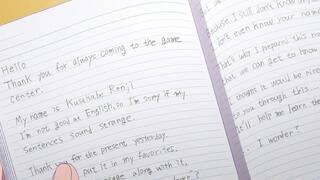 Hello
Thank you for always coming to the game
center.
My name is Kusakabe Renji
I'm not good at English, so I'm sorry if my
sentences sound strange.
Thank you for the present yesterday.
put it in my favorites.
along with it,
Because I still don't know
don't even know your name
That's why I prepared this
that we can get to know
I thought it would be nice
you through this...
It'll help me learn the
... I wonder?